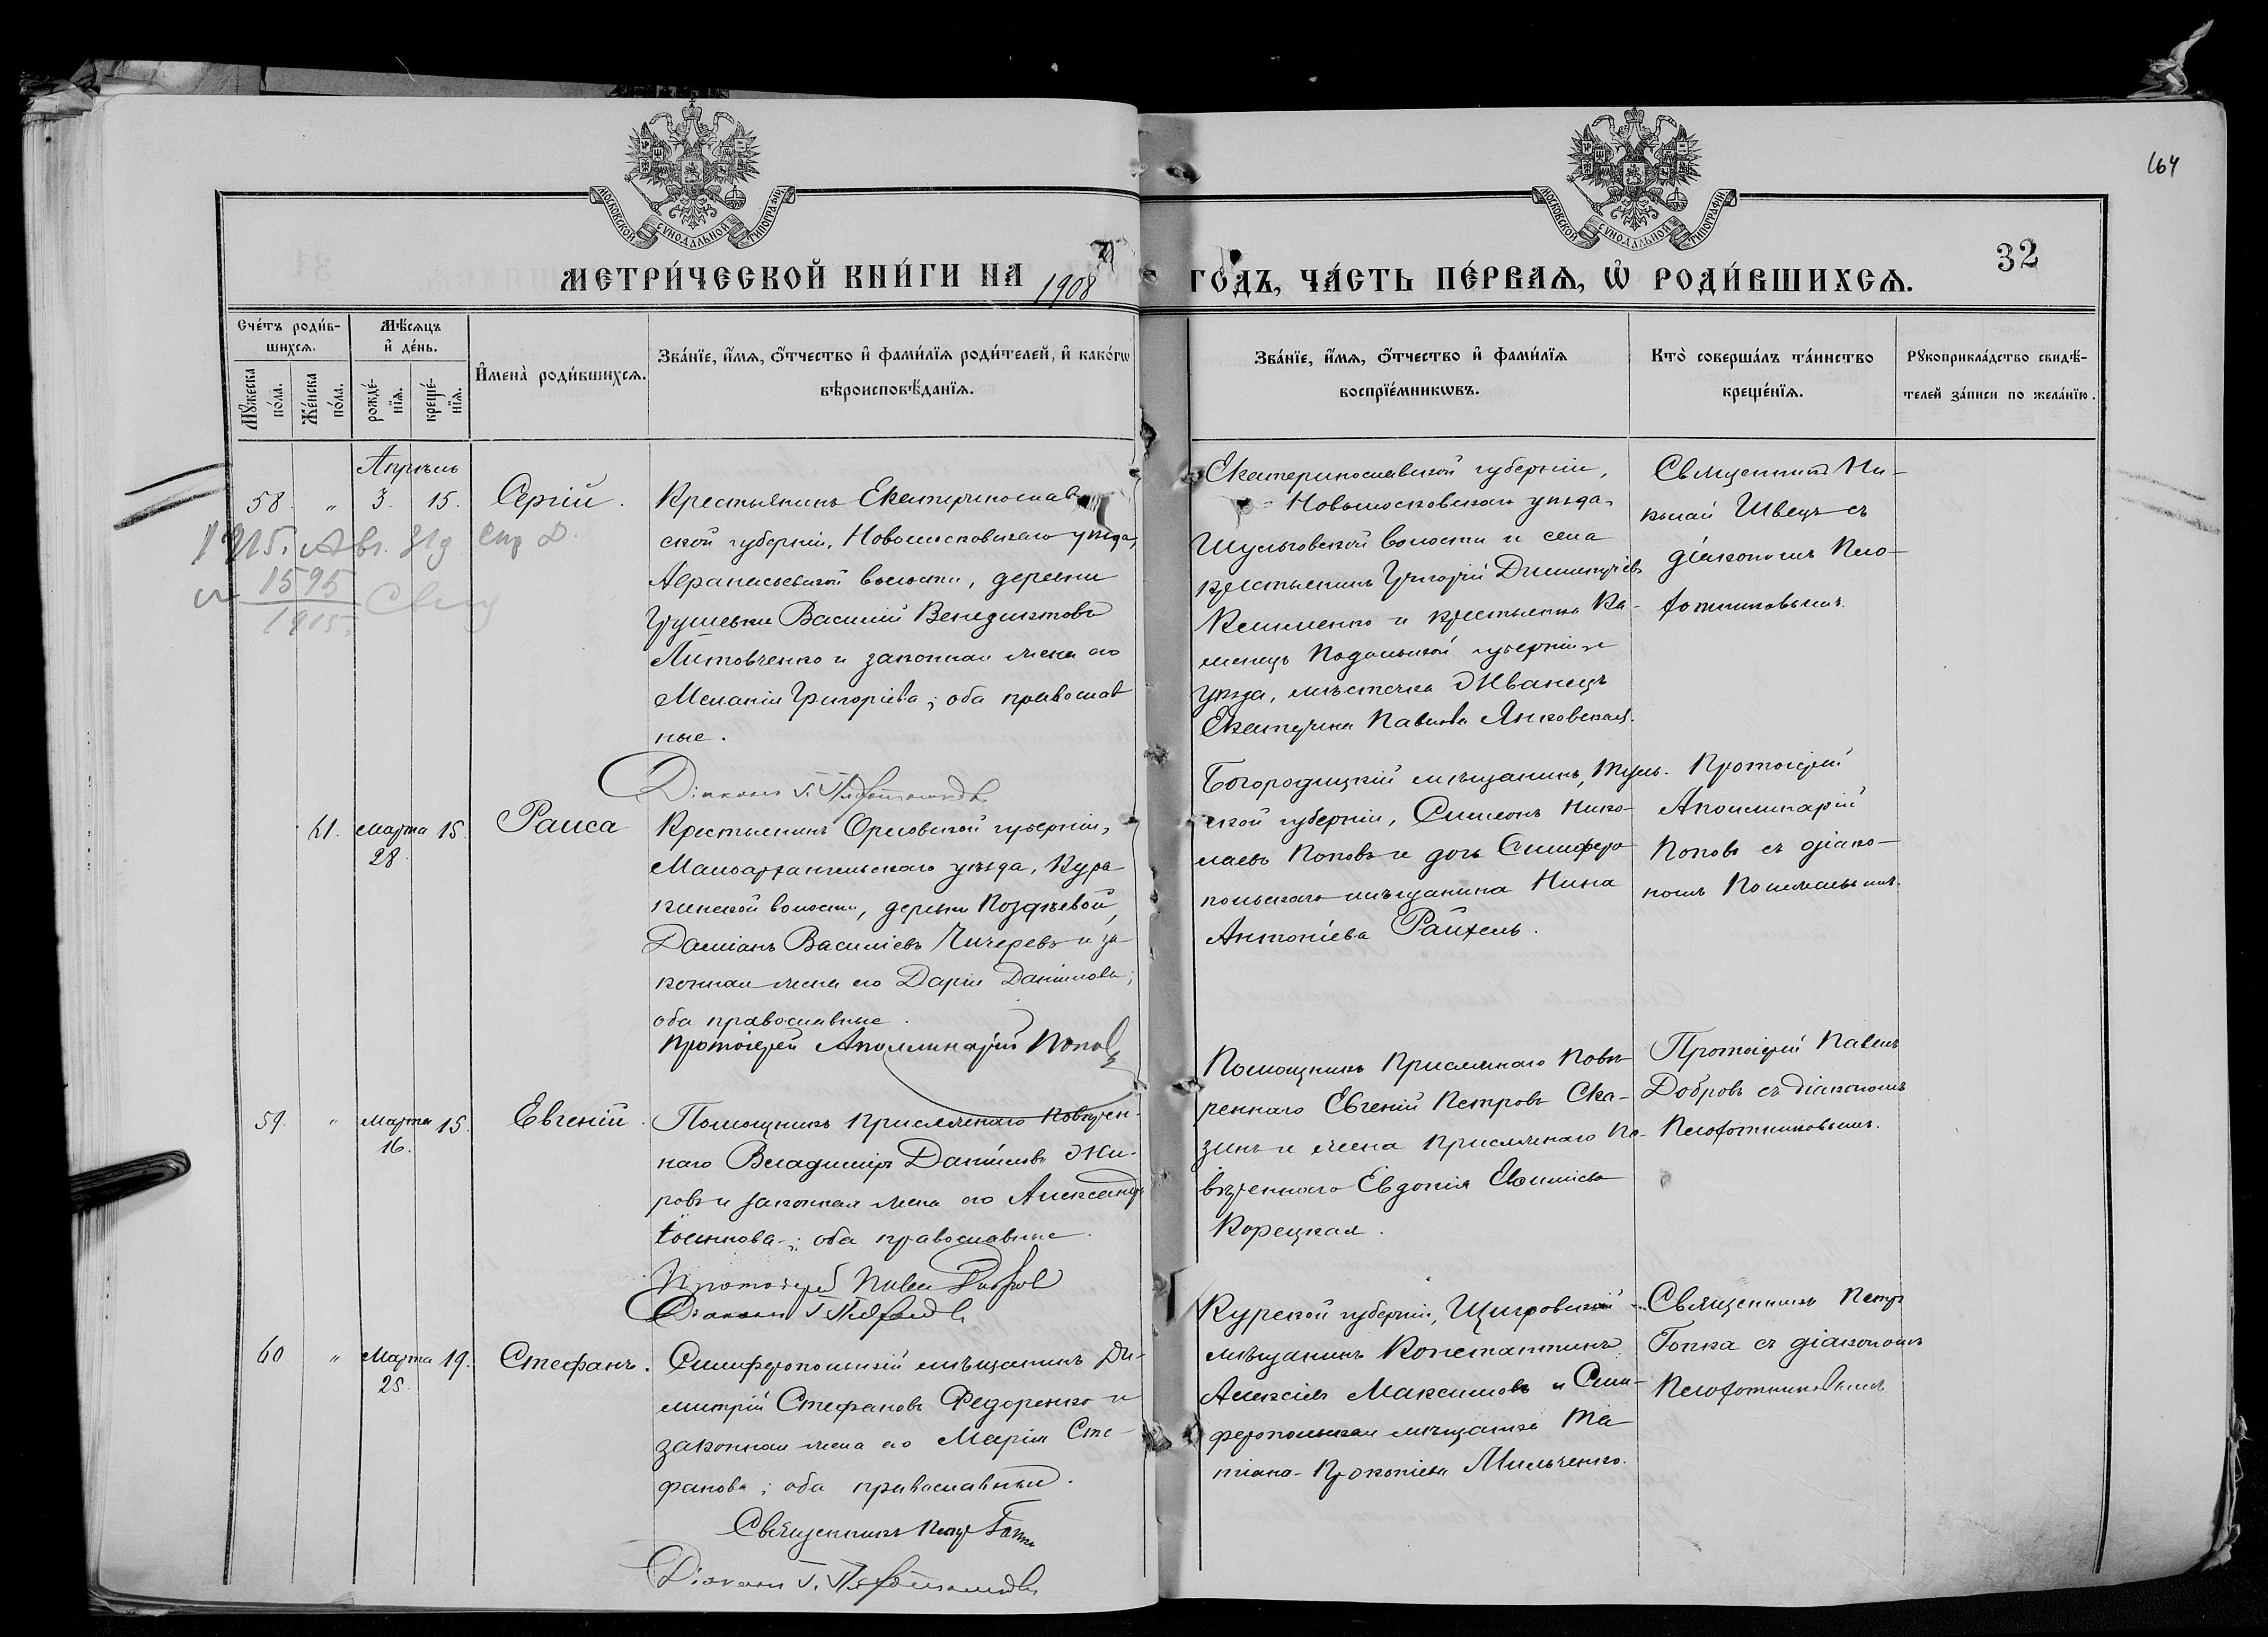 164
МОСКОВСКОЙ СѴНОДАЛЬНОЙ ТИПОГРАФІИ
МОСКОВСКОЙ СѴНОДАЛЬНОЙ ТИПОГРАФІИ
32
МЕТРИ́ЧЕСКОЙ КНИ́ГИ НА 1908 ГО́ДЪ, ЧА́СТЬ ПЕ́РВАЯ, Ѽ РОДИ́ВШИХСЯ.
Сче́тъ роди́в-
шихся.
Му́жеска по́ла.
Же́нска по́ла.
Мѣ́сяцъ и҆ де́нь.
рожде́-нїя.
креще́-нїя.
И҆мена̀ роди́вшихся.
Зва́нїе, и҆́мя, ѻ҆́тчество и҆ фами́лїя роди́телей, и҆ како́гѡ
вѣроисповѣ́данїя.
Зва́нїе, и҆́мя, ѻ҆́тчество и҆ фами́лїя
воспрїе́мникѡвъ.
Кто̀ соверша́лъ та́инство
креще́нїя.
Рꙋкоприкла́дство свидѣ́-
телей за́писи по жела́нїю.
Апрѣль
58. " 3. 15. Сергій.
Крестьянинъ Екатеринослав
ской губерніи, Новомосковскаго уѣзда,
Афанасьевской волости, деревни
Грушевки Василій Венедиктовъ
Литовченко и законная жена его
Меланія Григоріева; оба православ
ные.
Діаконъ
Екатеринославской губерніи,
Новомосковскаго уѣзда,
Шульговской волости и села
крестьянинъ Григорій Димитріевъ
Клименко и крестьянка Ка-
менецъ Подольской губерніи и
уѣзда, мѣстечка Жванецъ
Екатерина Павлова Янковская.
Священникъ Ни-
колай Швецъ съ
діакономъ Пло-
хотниковымъ.
1915. Авг. 31 д
1595
1915
61. Марта 28. 15. Раиса
Крестьянинъ Орловской губерніи,
Малоархангельскаго уѣзда, Кура
кинской волости, деревни Поздѣевой,
Даміанъ Василіевъ Чичеревъ и за
конная жена его Дарія Даніилова;
оба православные.
Протоіерей Аполлинарій Поповъ
Богородицкій мѣщанинъ, Туль-
ской губерніи, Симеонъ Нико-
лаевъ Поповъ и дочь Симферо
польскаго мѣщанина Нина
Антоніева Райхель.
Протоіерей
Аполлинарій
Поповъ съ діако-
номъ
59. " Марта 16. 15. Евгеній.
Помощникъ Присяжнаго Повѣрен-
наго Владиміръ Даніиловъ Жи-
ровъ и законная жена его Александра
оба православные.
Протоіерей Павелъ Добровъ
Діаконъ
Помощникъ Присяжнаго Повѣ
реннаго Евгеній Петровъ Ска-
зинъ и жена Присяжнаго По-
вѣреннаго Евдокія
Корецкая.
Протоіерей Павелъ
Добровъ съ діакономъ
Плохотниковымъ.
60 " Марта 25. 19. Стефанъ.
Симферопольскій мѣщанинъ Ди-
митрій Стефановъ Федоренко и
законная жена его Марія Сте-
фанова; оба православные.
Священникъ Петръ Гопка
Діаконъ
Курской губерніи, Щигровскій
мѣщанинъ Константинъ
Алексіевъ Максимовъ и Сим-
феропольская мѣщанка Та
тіана Прокопіева Мильченко.
Священникъ Петръ
Гопка съ діакономъ
Плохотниковымъ